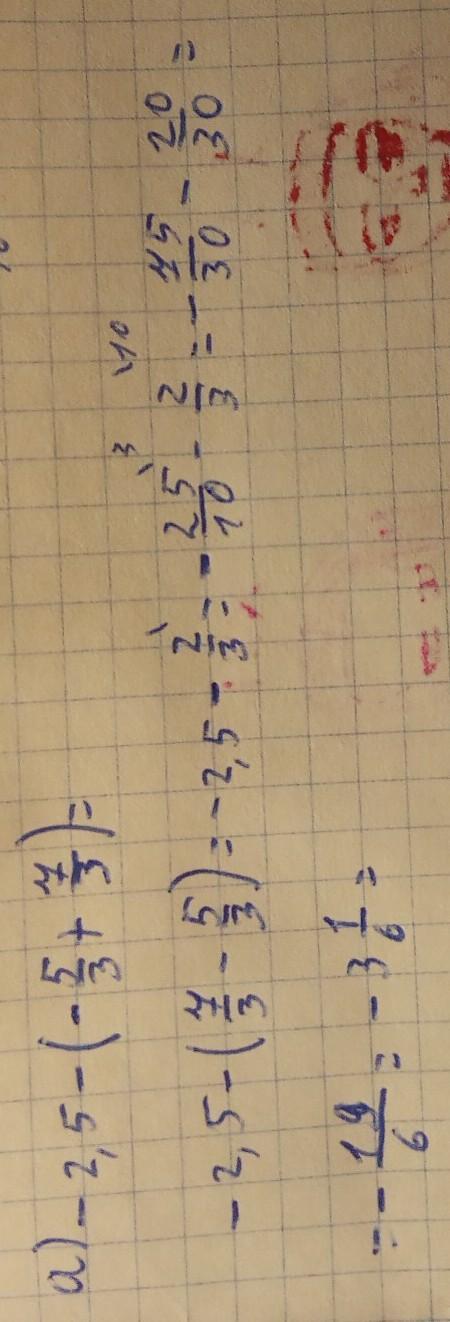 a) -2,5 - (-5/3 + 7/3) =
-2,5 - (7/3 - 5/3) = -2,5 - 2/3 = -25/10 \3 - 2/3 \10 = -75/30 - 20/30 =
= -19/6 = -3 1/6 =